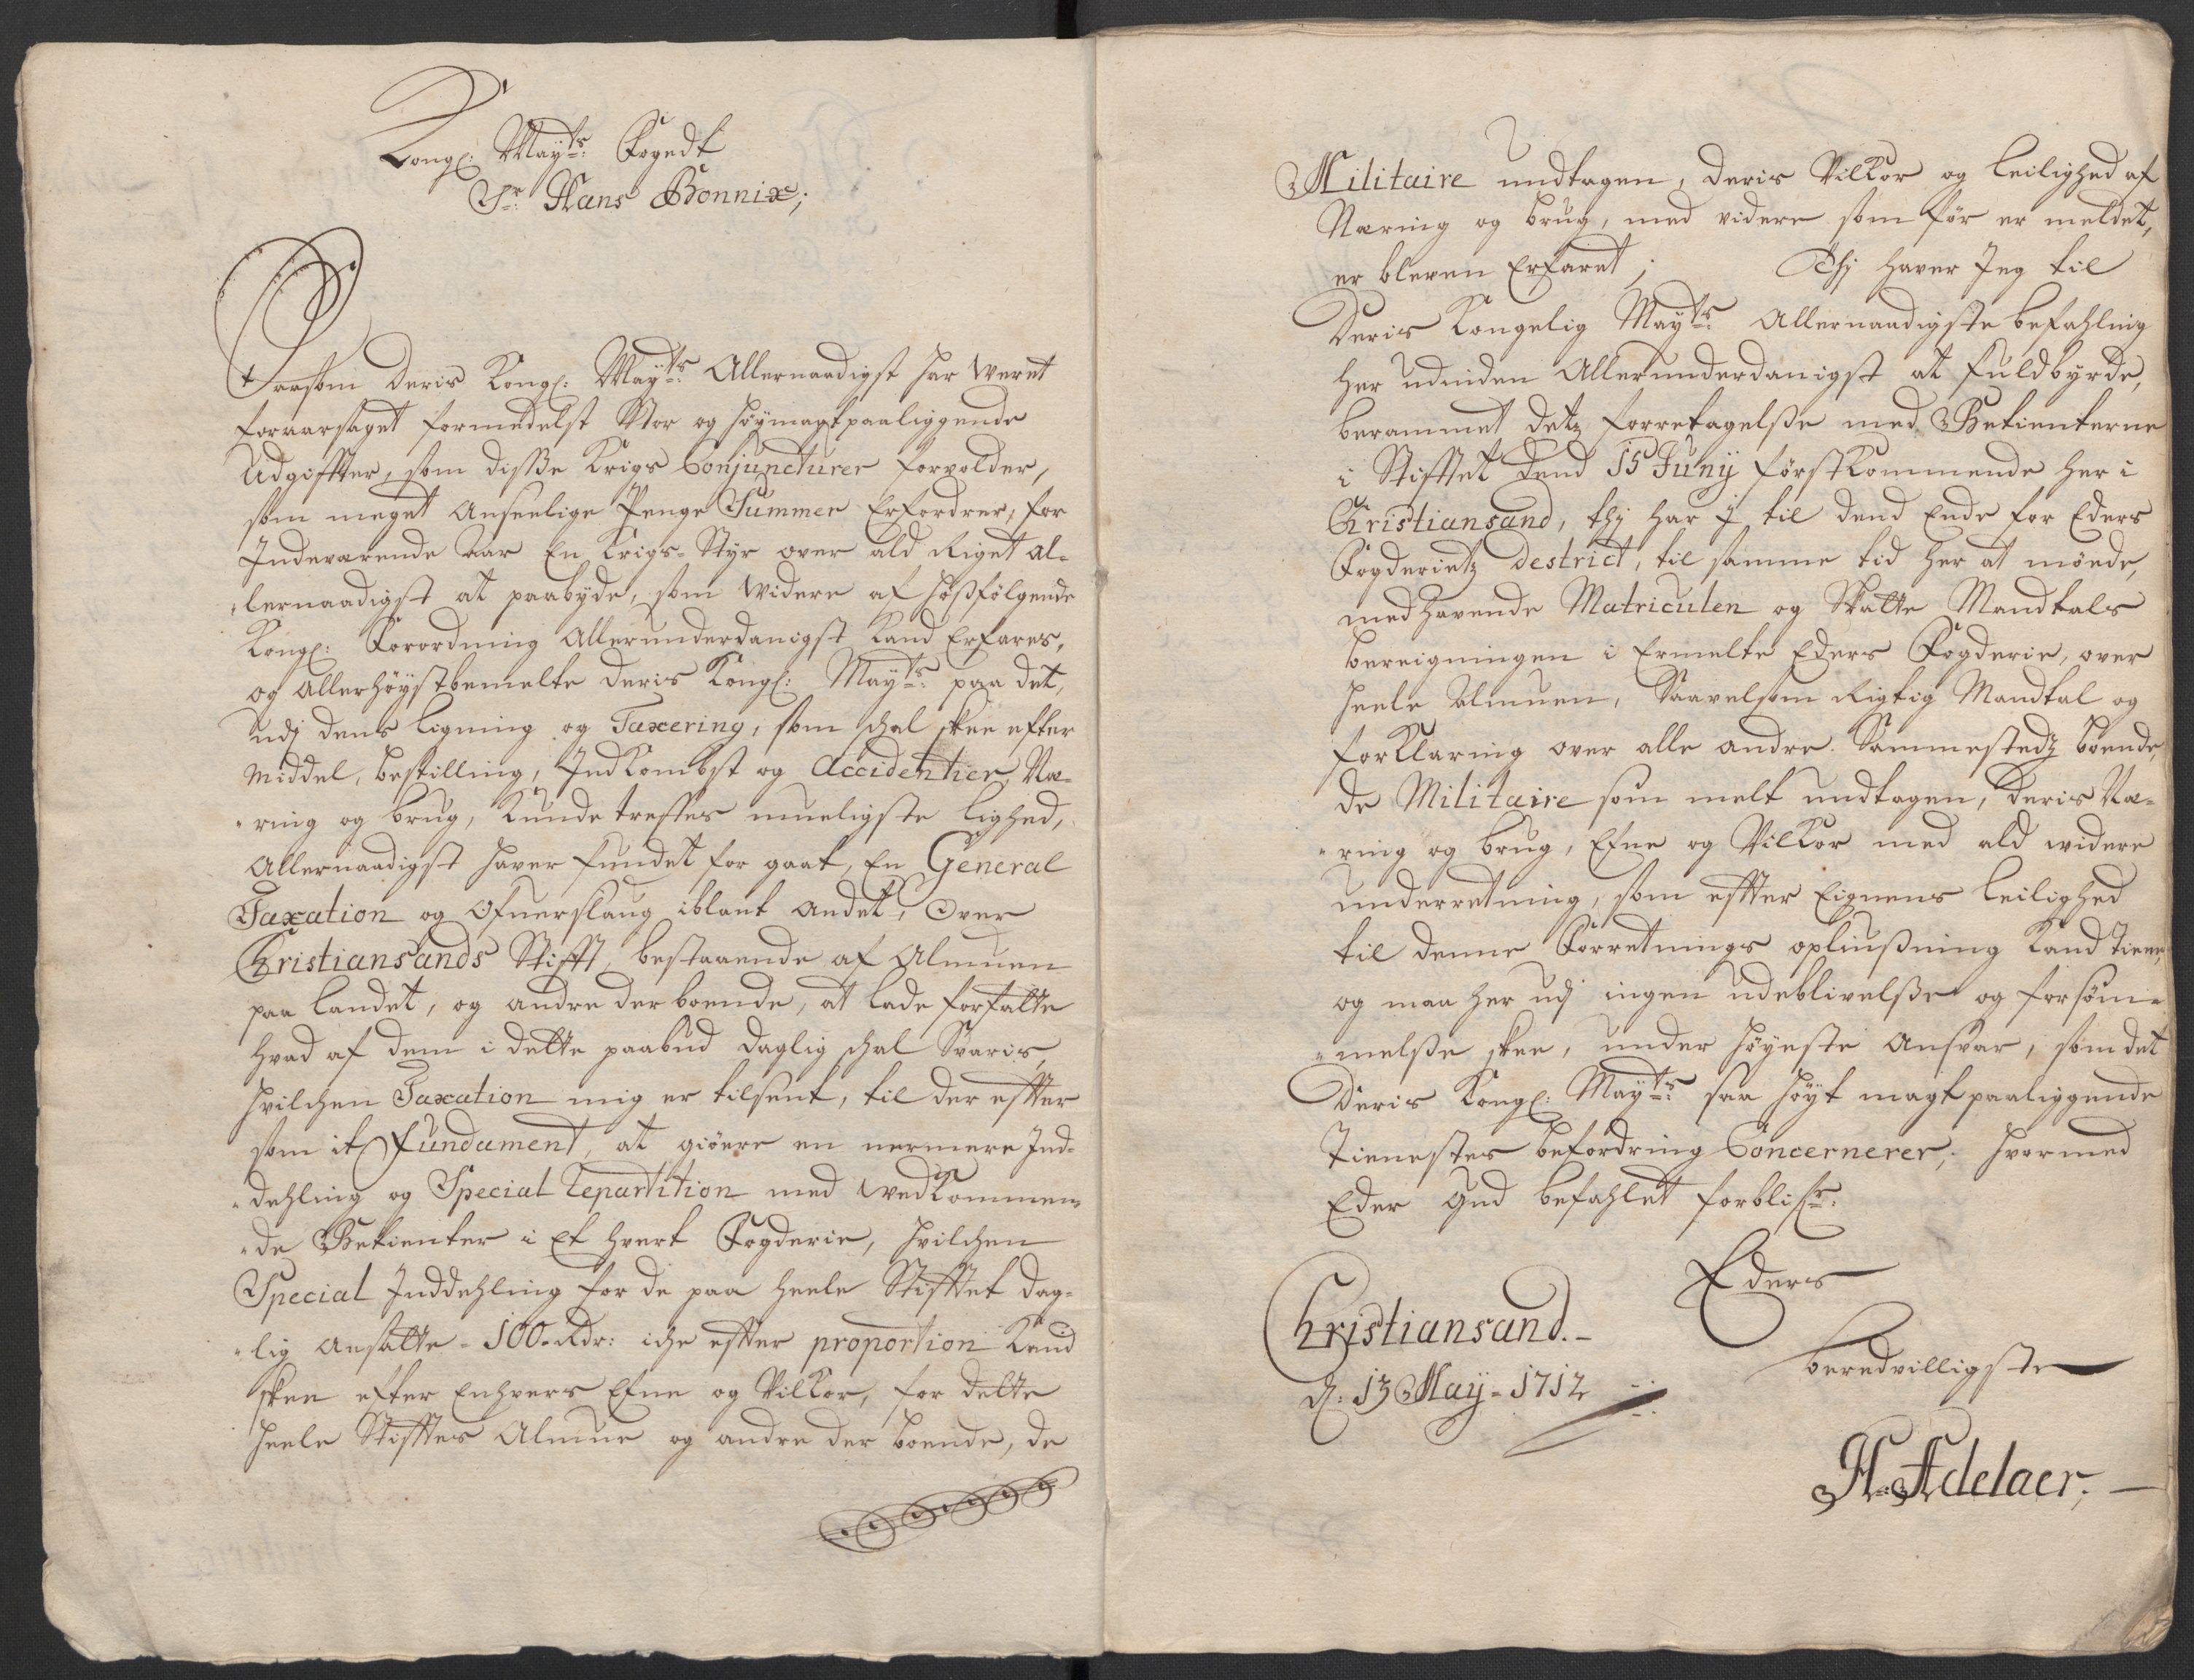 Kongl: Mayts: Fogedt
Sr: Hans Bonnix;
Saasom Deris Kongl: Mayts: Allernaadigst har weret
foraarsaget formedelst Stor og höymagtpaaliggende
Udgiffter, som disse Krigs Conjuncturer forvolder,
som meget Anseelige Penge Summer Erfordrer, for
Indeværende Aar En Krigs-Styr over ald Riget Al-
lernaadigst at paabyde, som Widere af hoßfölgende
Kongl: Forordning Allerunderdanigst Kand Erfares,
og Allerhöystbemelte Deris Kongl: Mayts: paa det,
udj dens ligning og Taxering, som schal skee efter
Middel, bestilling, Indkombst og Accidentier, Næ-
ring og brug, Kunde treffes mueligste lighed,
Allernaadigst haver fundet for gaat, En General
Taxation og Ofuerslaug iblant Andet, Over
Christiansands Stifft, bestaaende af Almuen
paa landet, og andre der boende, at lade forfatte
hvad af dem i dette paabud daglig schal Svaris,
hvilchen Taxation mig er tilsent, til der effter
som it Fundament, at giöere en nermere Ind-
dehling og Special Repartition med wedkommen-
de Betienter i Et hvert Fogderie, hvilchen
Special Inddehling for de paa heele Stifftet dag-
lig Ansatte - 100 Rdr: iche effter proportion Kand
skee efter Enhvers Efne og Vilkor, før dette
heele Stifftes Almue og andre der boende, de
Militaire undtagen, Deris Vilkor og leilighed af
Næring og brug, med videre som för er meldet,
er bleven Erfaret; Thj haver Jeg til
Deris Kongelig Mayts: Allernaadigste befahling
her udinden Allerunderdanigst at fuldbyrde,
berammet detz forretagelße med Betienterne
i Stifftet dend 15 Junij förstkommende her i
Christiansand, thj har I til dend Ende for Eders
Fogderietz destrict, til samme tid her at möede,
medhavende Matriculen og Skatte Mandtals
bereigningen i Ermelte Eders Fogderie, over
heele Almuen, Saavelsom Rigtig Mandtal og
forklaring over alle andre Sammestedz boende,
de Militaire som melt undtagen, Deris Næ-
ring og brug, Efne og Vilkor med ald widere
underretning, som effter Eignens leilighed
til denne Forretnings opliußning Kand tiene,
og maa her udj ingen udeblivelße og forsöm-
melße skee, under höyeste Ansvar, som det
Deris Kongl: Mayts: saa höyt magtpaaliggende
Tienestes befordring Concernerer; hvormed
Eder Gud befahlet forblifr:
Eders
Christiansand. -
d: 13 Maij - 1712
beredvilligste
H: Adelaer; -